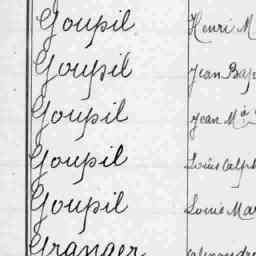 Goupil Henri M
Goupil Jean Bap
Goupil Jean M.
Goupil Louis
Goupil Louis Mar
Granger Alexandre